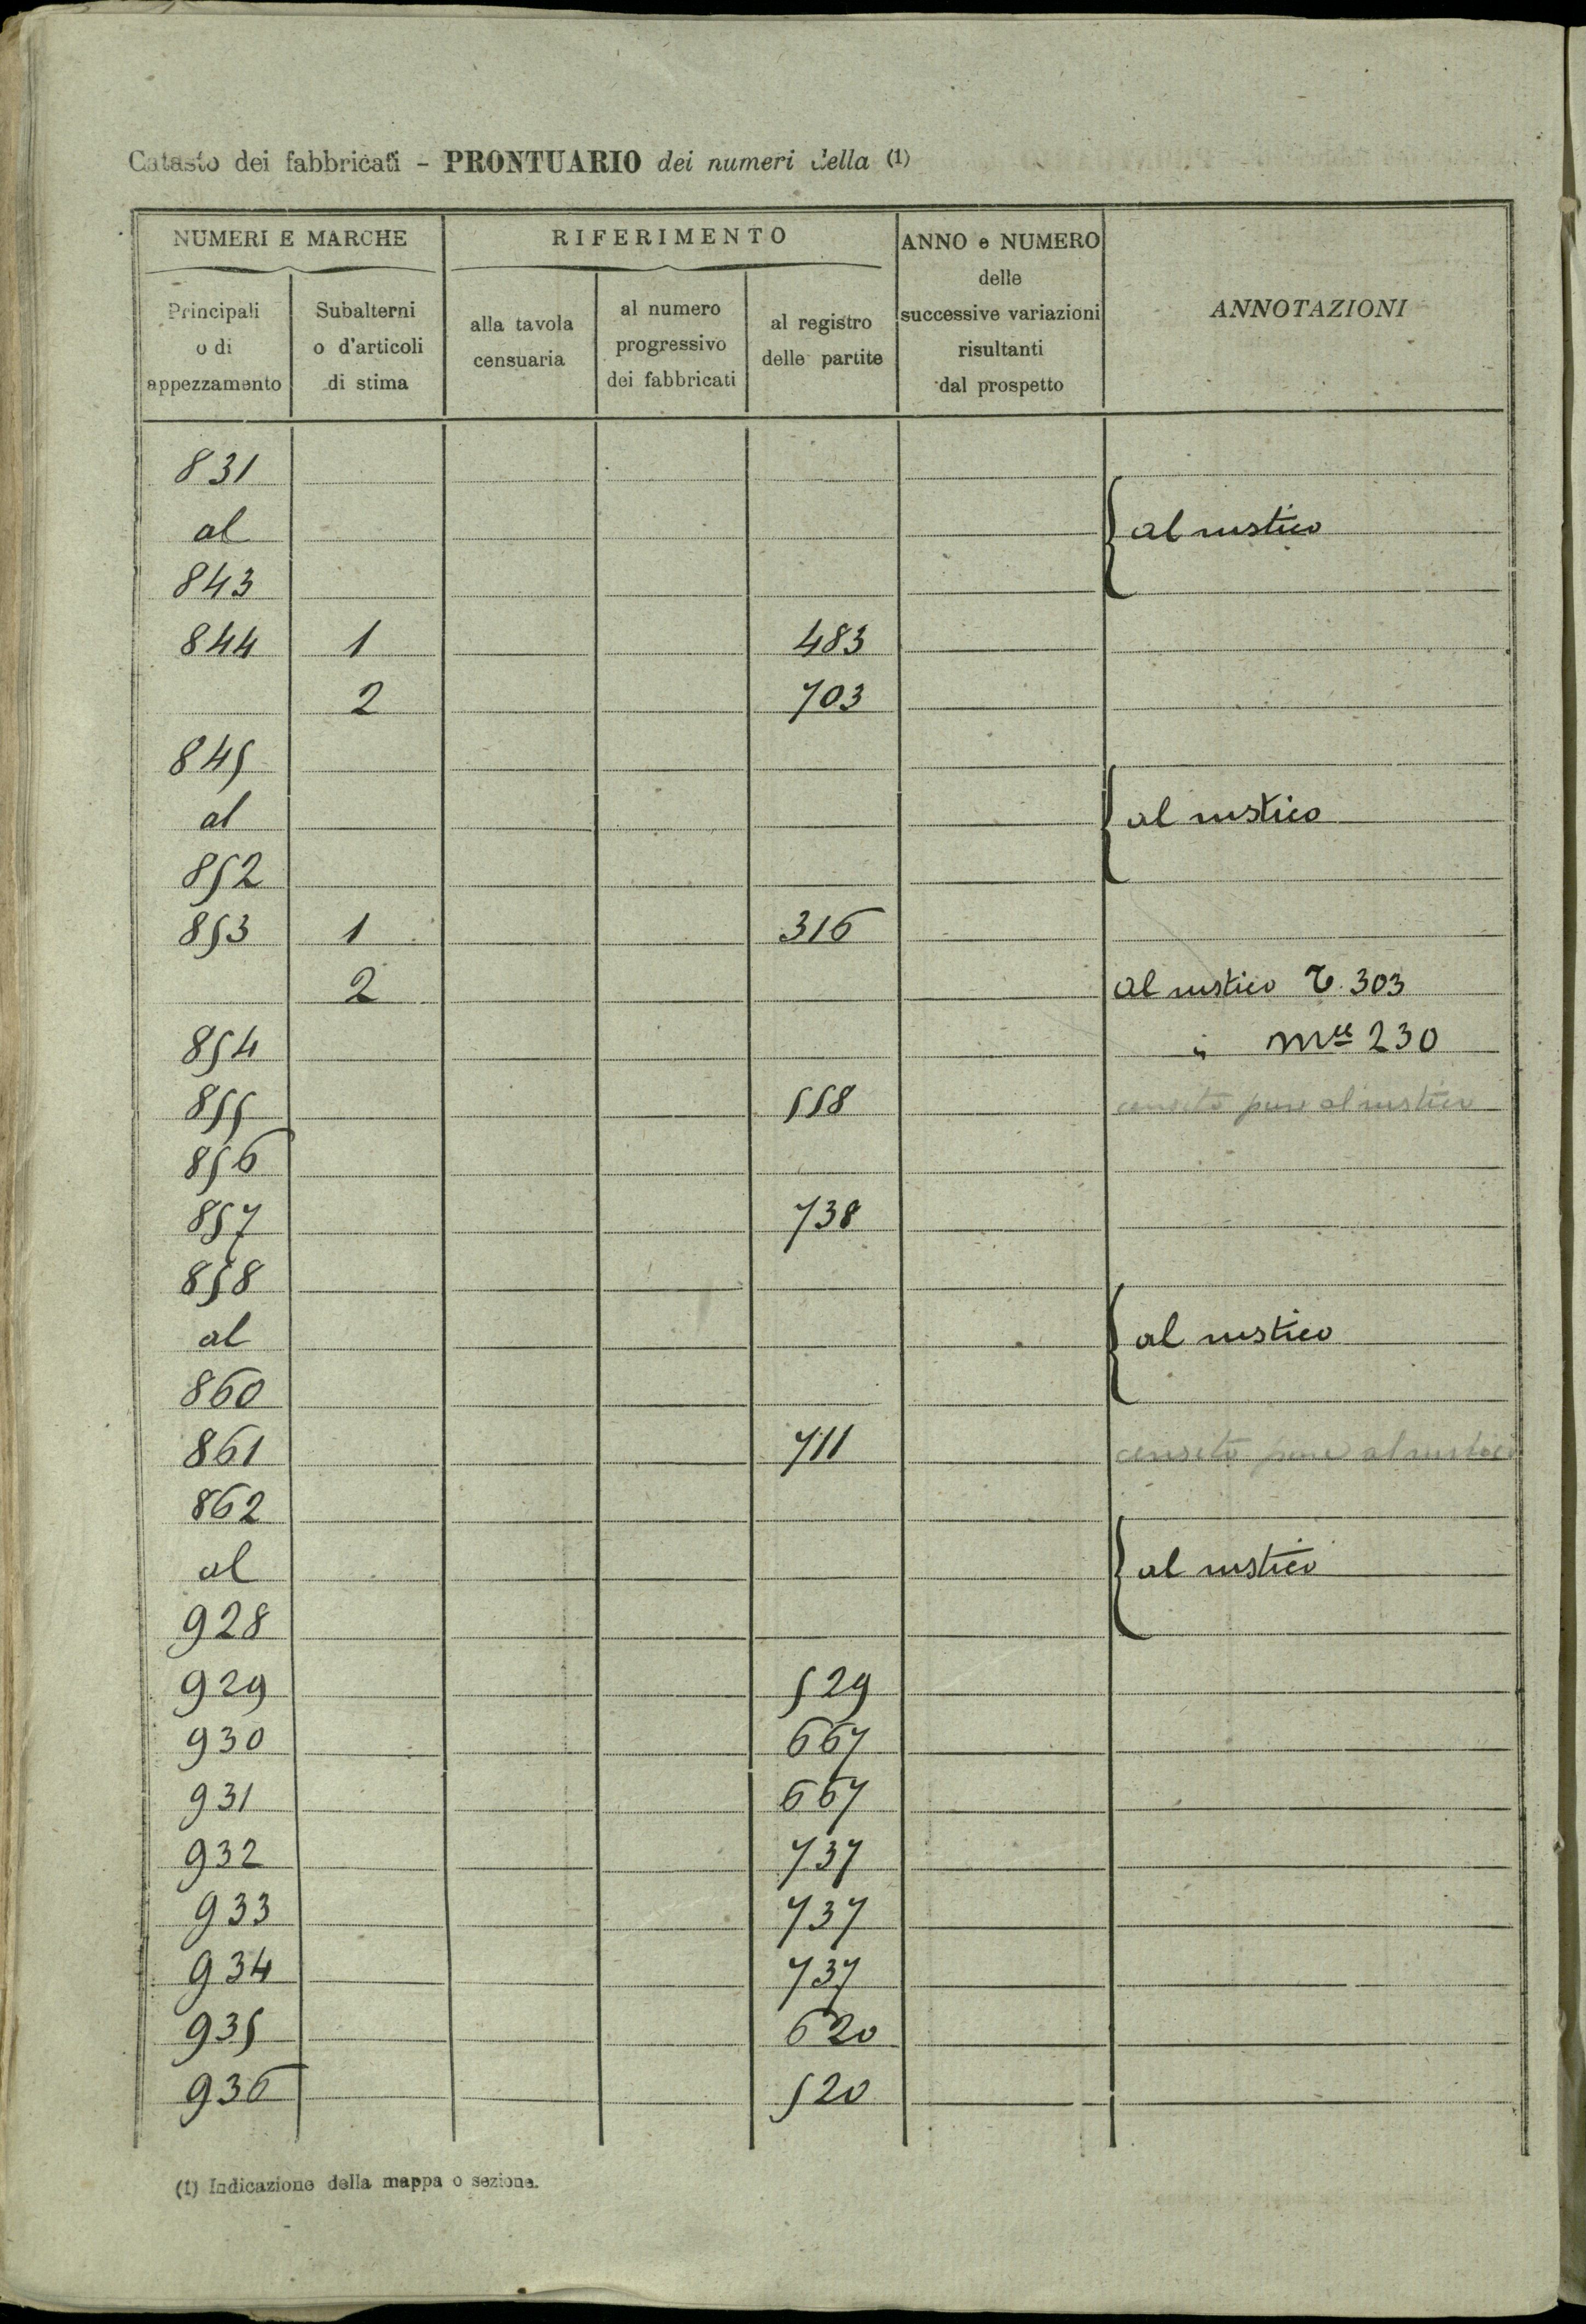 Catasto dei fabbricati - PRONTUARIO dei numeri della (1)
NUMERI E MARCHE RIFERIMENTO ANNO e NUMERO delle successive variazioni risultanti dal prospetto ANNOTAZIONI
Principali o di appezzamento Subalterni o d'articoli di stima alla tavola censuaria al numero progressivo dei fabbricati al registro delle partite
831
al al rustico
843
844 1 483
2 703
845
al al rustico
852
853 1 316
2 al rustico T. 303
854 " Mlle 230
855 558 censito pure al rustico
856
857 738
858
al al rustico
860
861 711 censito pure al rustico
862
al al rustico
928
929 529
930 667
931 667
932 737
933 737
934 737
935 620
936 520
(1) Indicazione della mappa o sezione.